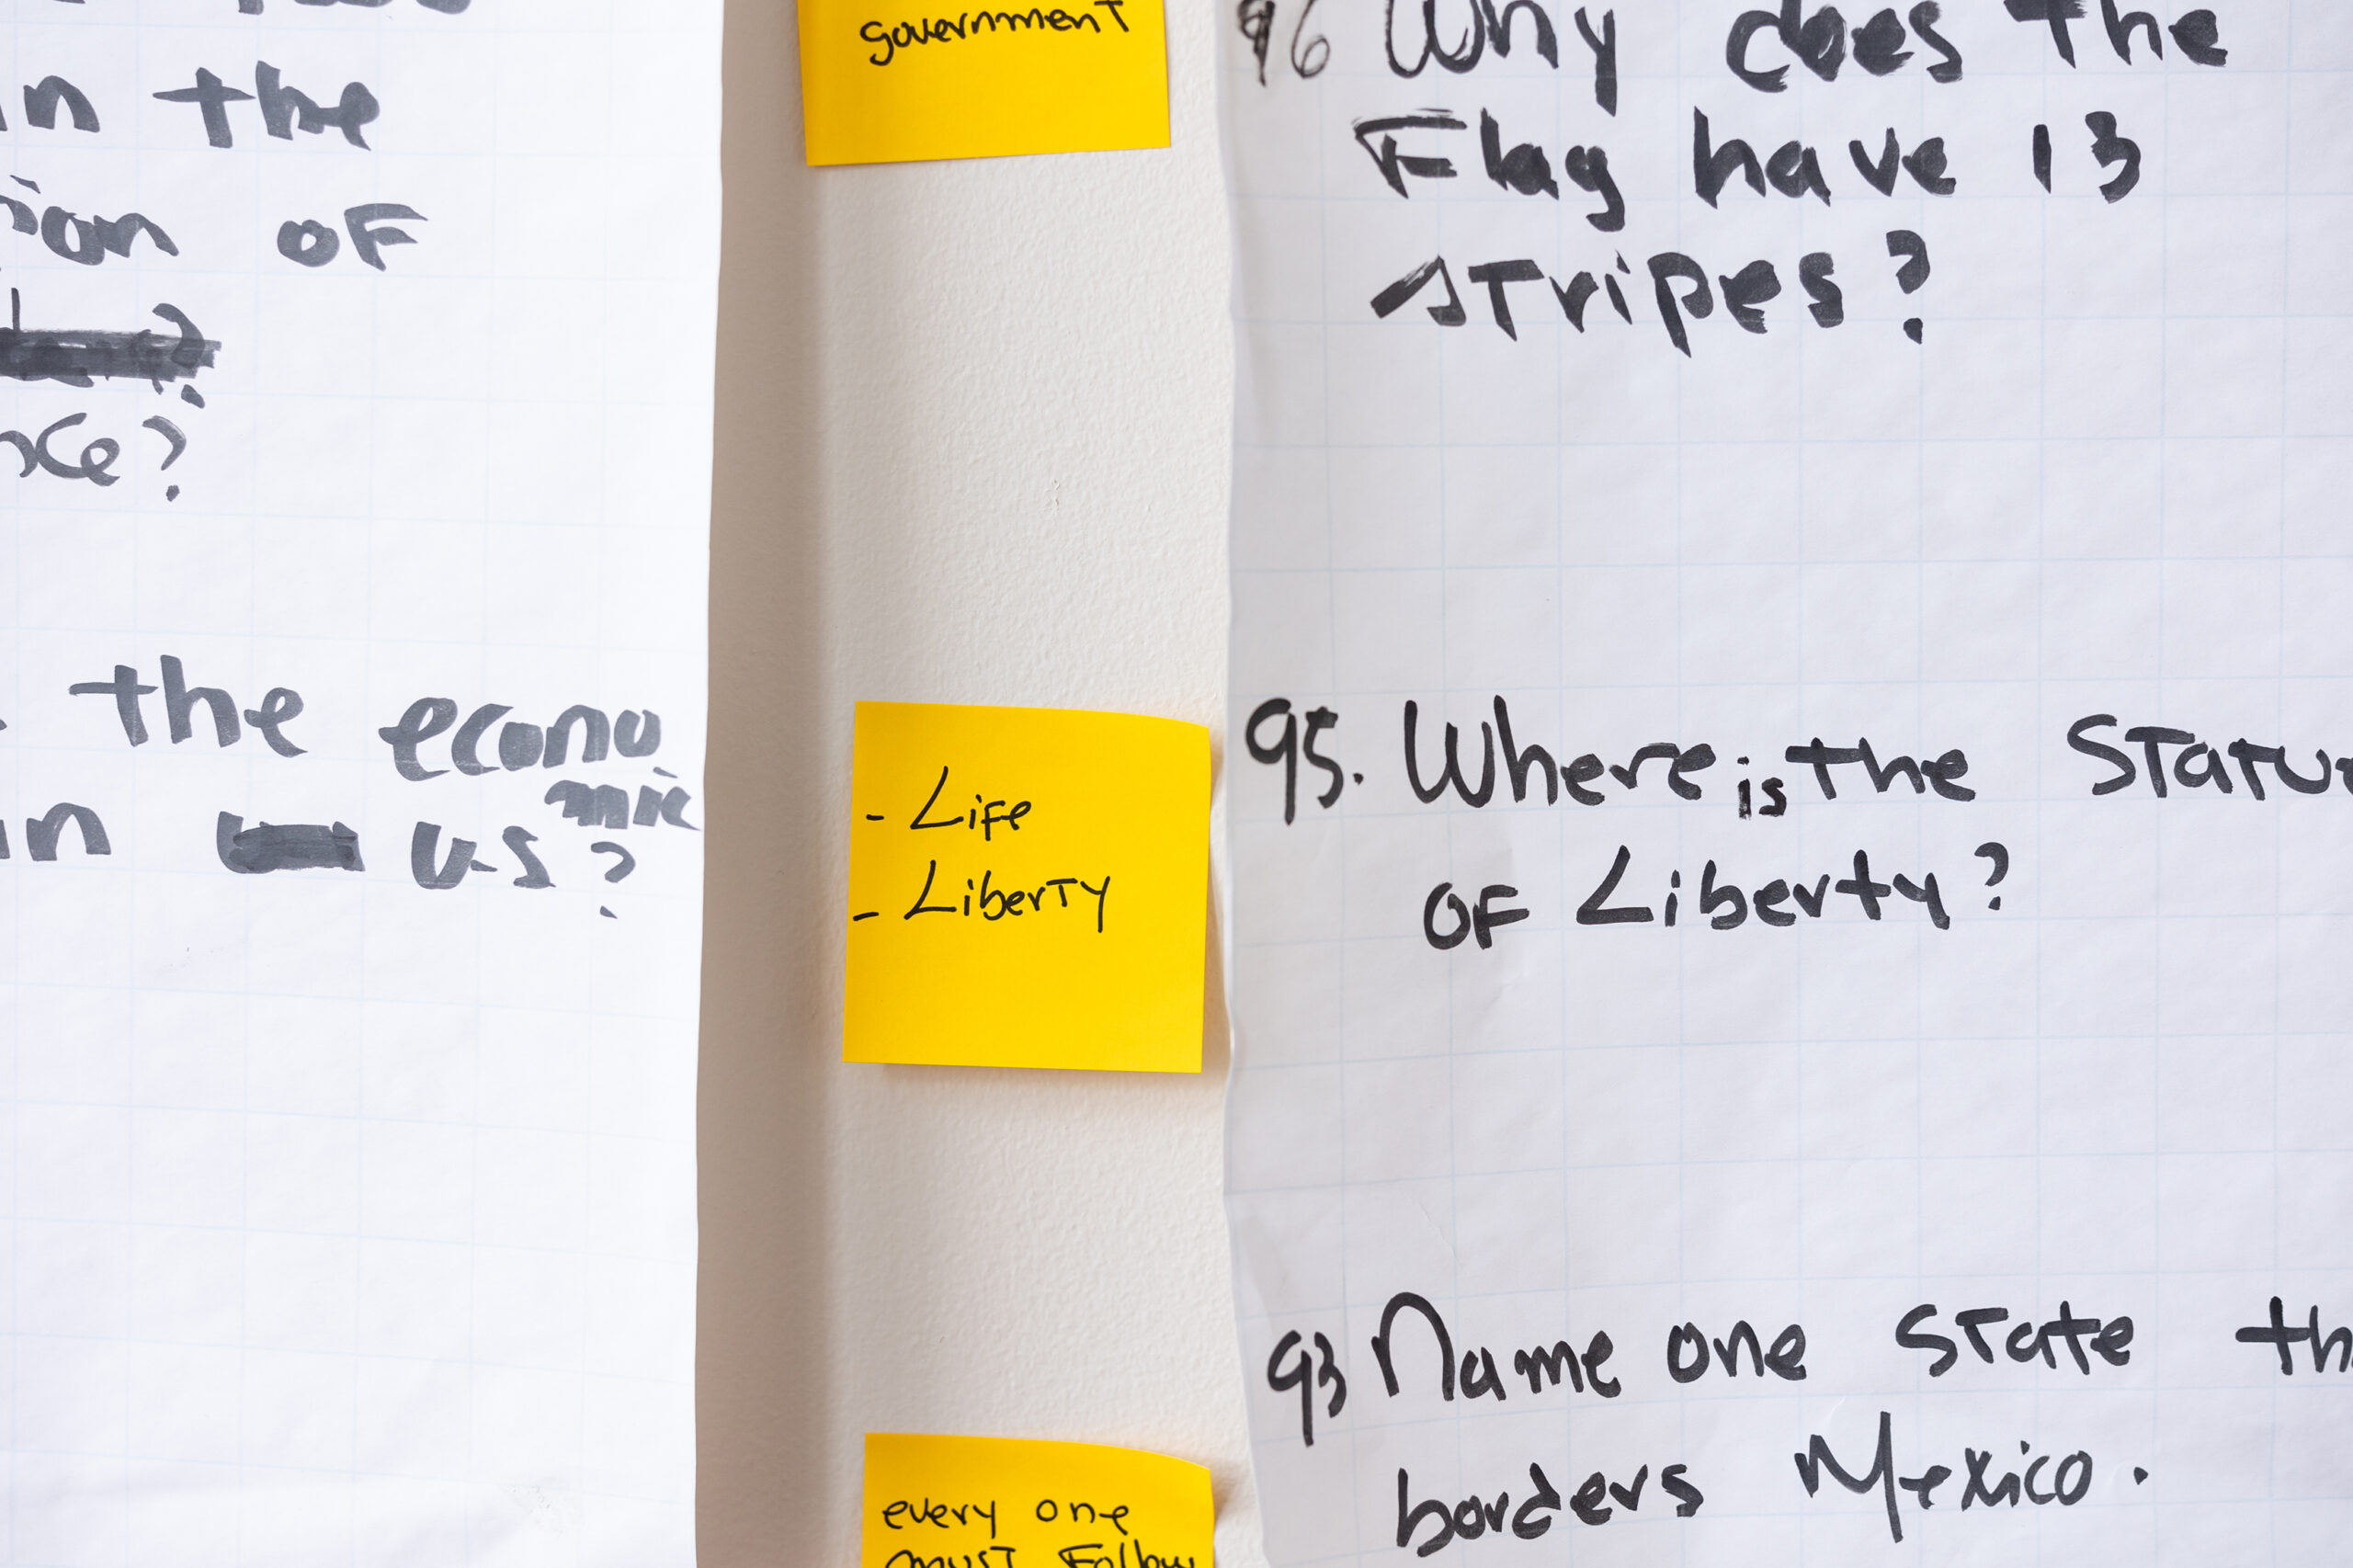 in the
of
?
the econo
mic
in U.S?
government
- Life
- Liberty
every one
must Follow
96 Why does the
Flag have 13
stripes?
95. Where is the Statue
of Liberty?
93 Name one state th
borders Mexico.